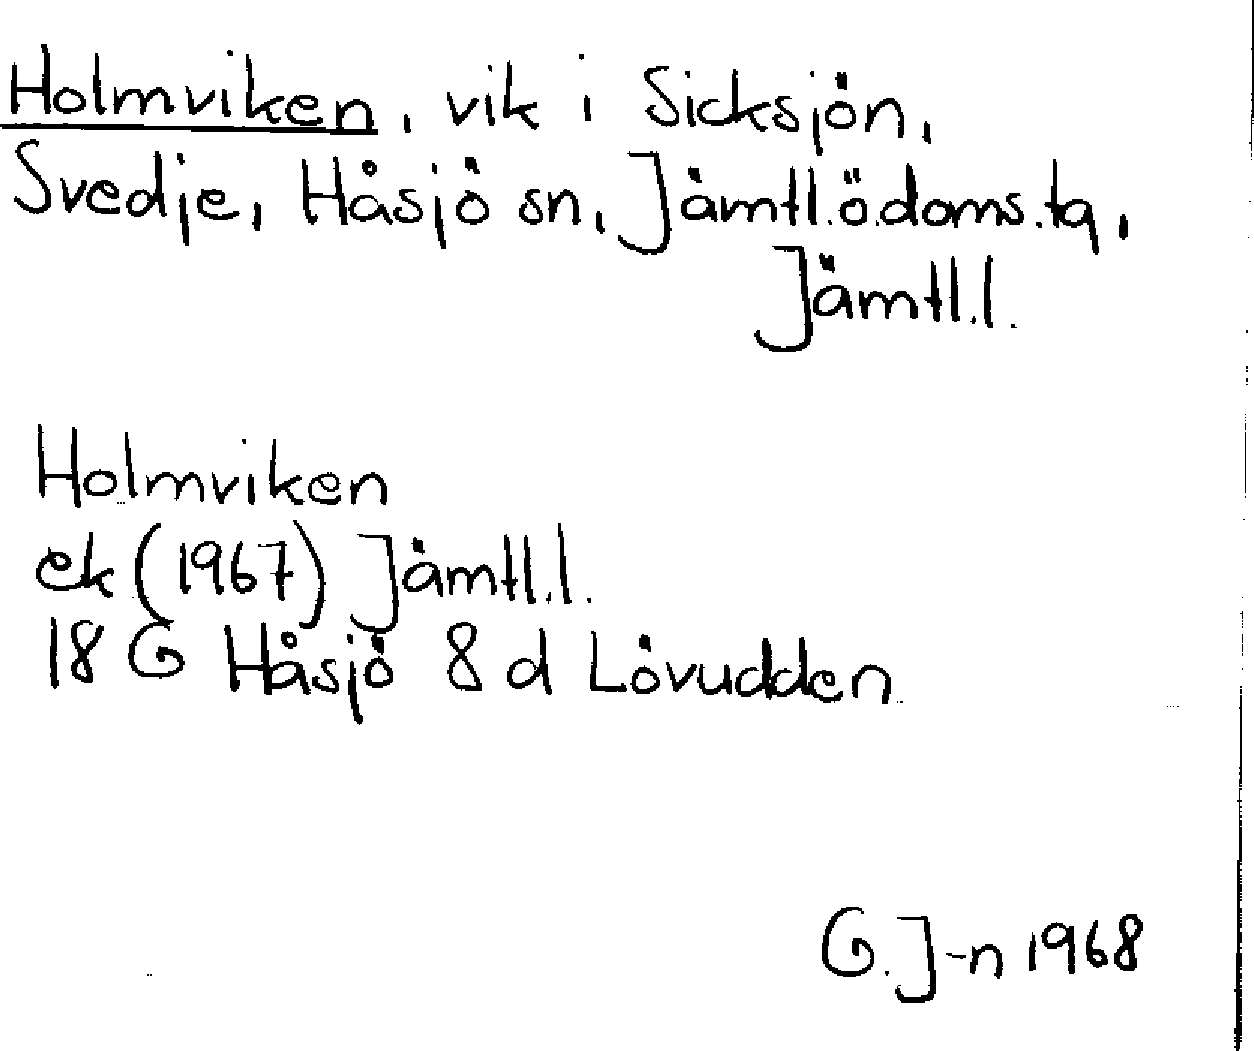 Holmviken, vik i Sicksjön,
Svedje, Håsjö sn, Jämtl.ö.doms.tg,
Jämtl.l.
Holmviken
ek (1967) Jämtl.l.
18 G Håsjö 8 d Lövudden
G. J-n 1968